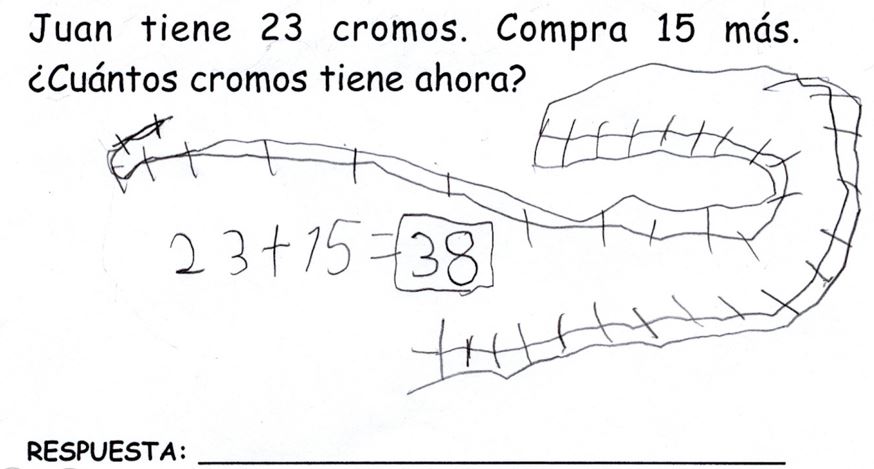 Juan tiene 23 cromos. Compra 15 más.
¿Cuántos cromos tiene ahora?
23+15=38
RESPUESTA: